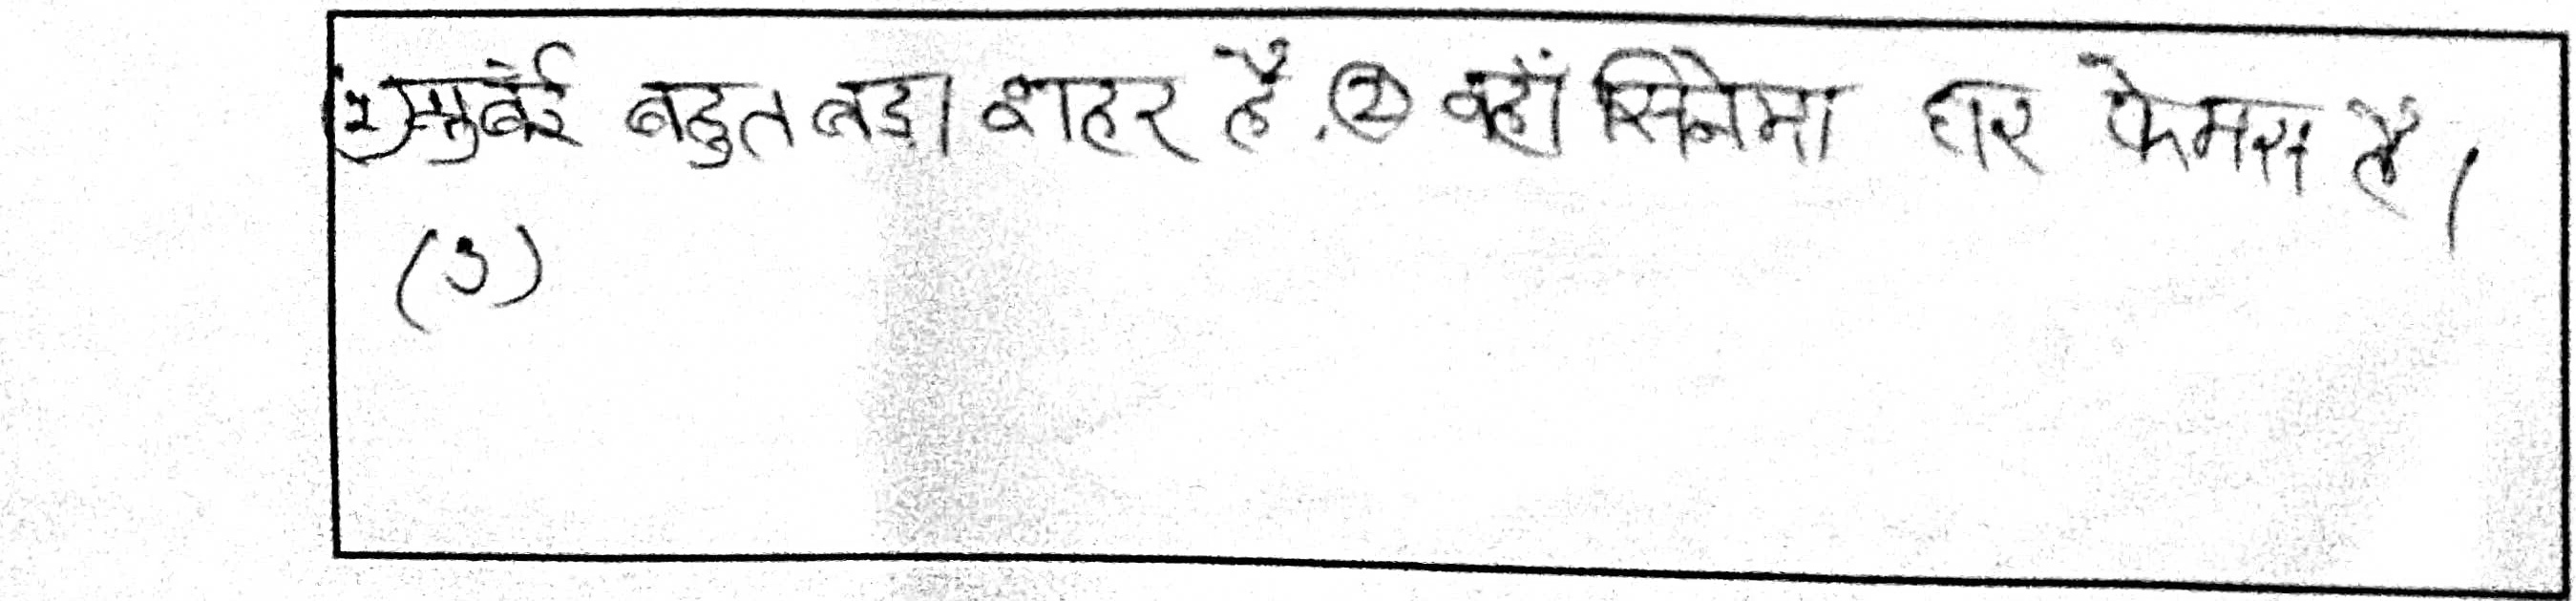 (1) मुबंई बहुत बडा शहर है. (2) वहाँ सिनेमा घर फेमस है।
(3)